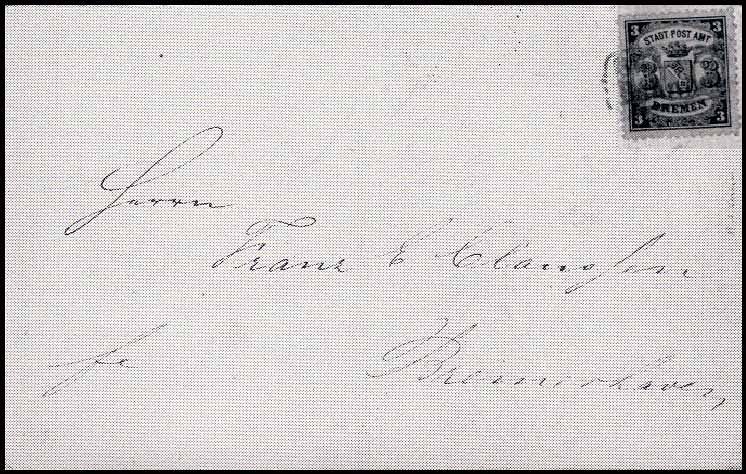 3 3
STADT POST AMT
BREMEN
3 3
Herrn
Franz E Claussen
fr
Bremerhaven,